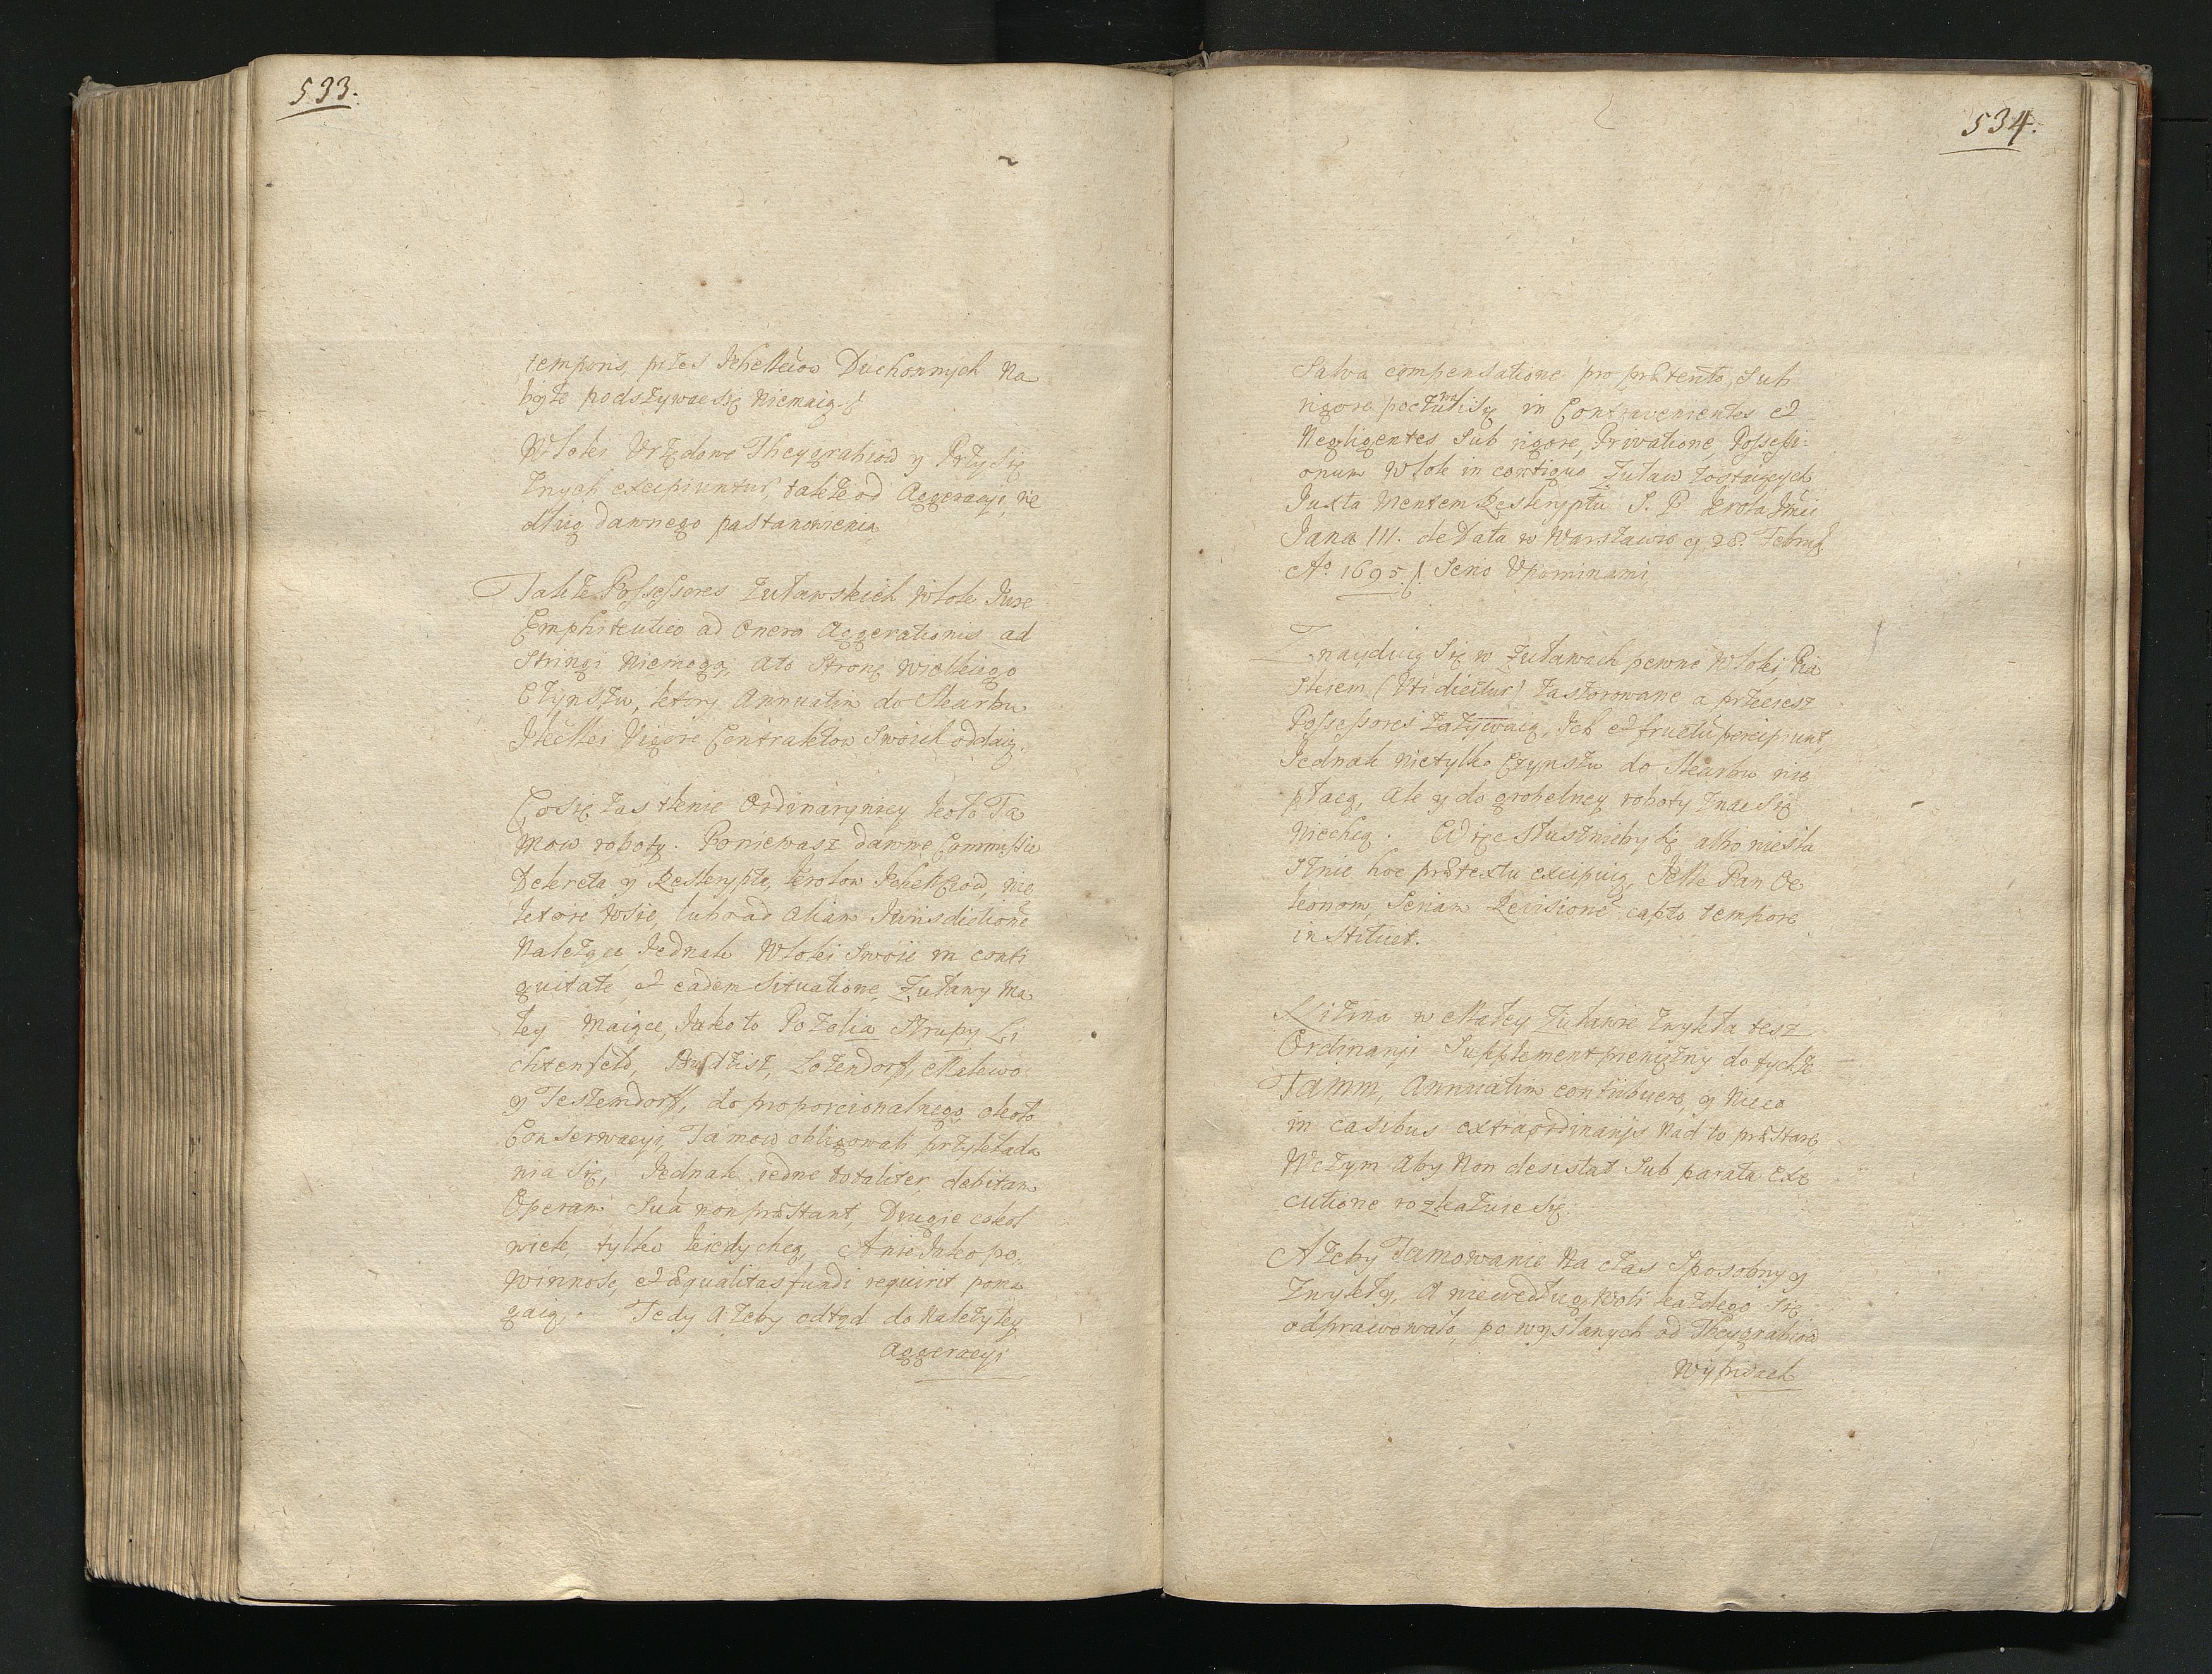 533.
temporis, przes Ichestwow Duchownych Na
byte podszywac się Niemaią.
Włoki Vrzędowe Theygrabiow y Przysię
znych excipiuntur, takze od Aggeracyi, we
dług dawnego postanowienia
Takze Possessores Zuławskich Włok Iure
Emphiteutico ad Onera Aggerationis ad
Stringi Niemogą, Ato Stroną wielkiego
Czynszu, ktory Annuatim do Skarbu
Vigore Contraktow Swoich oddaią.
Cosię zas tknie Ordinaryiney koło Ta
mow roboty. Poniewasz dawne Commissie
Dekreta y Reskrypta, Krolow nie
ktore wsie, lubo ad aliam Iurisdictionē
Nalezące, Iednak Włoki Swoie in conti
guitate, et eadem Situatione, Zuławy Ma
ley Maiące, Iako to Pozolia Strupy, Li
chtenfeld, Lozendorff, Malewo
y Testemdorff, do proporcionalnego około
Conserwacyi, Tamow obligowali przykłada
nia się, Iednak iedne totaliter debitam
Operam Suā non præstant, Drugie cokol
wiek, tylko kiedy chcą, Anie Iako po,
winnosc, et æqualitas fundi requirit poma
gaią. Tedy Azeby odtąd do Nalezytey
Aggeracyi
534.
Salva compensatione pro præterito, Sub
rigore in Contravenientes et
Negligentes Sub rigore, Privatione, Possessi-
onum Włok in contiguo Zuław zostaiących
Iuxta Mentem Reskryptu S. P. Krola Imci
Jana III. de Data w Warszawie 28. Februa.
Aº 1695. Serio Vpominami
Znayduią Się w Zuławach pewne Włoki, Pia
skiem (Vti dicitur) zasforowane a przeciesz
Possessores Zazywaią, Ich et fructū percipiunt
Iednak nietylko Czynszu do Skarbu nie
płacą, ale y do grobelney roboty znac Się
Niechcą. Więc słusznieby się albo niesłu
sznie hoc prætextu excipuią, Pan Oe
konom, Seriam Revisionē capto tempore
instituet.
Licina w Małey Zuławie Zwykła tesz
Ordinaryi Supplement pieniężny do tychze
Tamm, Annuatim contribuere, y Nieco
in casibus extraordinarijs Nad to præstare,
Wczym Aby Non desistat Sub parata exe
cutione rozkazuie Się
Azeby Tamowanie Na czas Sposobny y
Zwykły, A niewedług Woli kazdego Się
odprawowało, po wysłanych od Theygrabiow
Wypisach